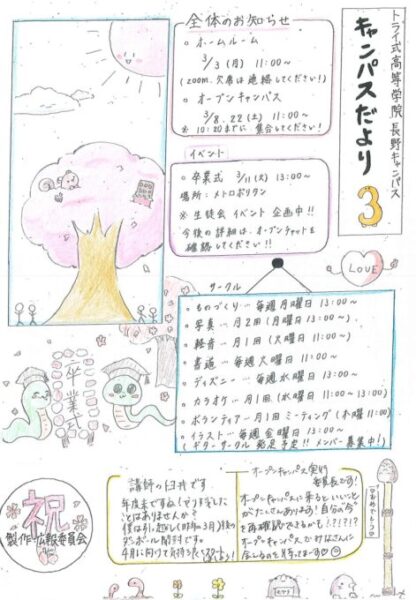 トライ式高等学院 長野キャンパス
キャンパスだより
3
全体のお知らせ
○ ホームルーム
3/3 (月) 11:00~
(zoom. 欠席は連絡してください!)
○ オープンキャンパス
3/8. 22 (土) 11:00~
※ 10:20までに 集合してください!
イベント
○ 卒業式 3/11(火) 13:00~
場所:メトロポリタン
※ 生徒会イベント 企画中!!
今後の詳細は、オープンチャットを
確認してください!!
LOVE
サークル
・ものづくり…毎週月曜日 13:00~
・写真…月2回(月曜日 13:00~)
・軽音…月1回(火曜日 11:00~)
・書道…毎週火曜日 11:00~
・ディズニー…毎週水曜日 13:00~
・カラオケ…月1回(水曜日 11:00~13:00)
・ボランティア…月1回ミーティング(木曜 11:00)
・イラスト…毎週金曜日 13:00~
(ギターサークル 発足予定!! メンバー募集中!)
卒業式
祝
製作…広報委員会
講師の
です
年度末ですね!やり残した
ことはありませんか?
僕は引っ越し(昨年3月)後の
段ボール開封です。
4月に向けて気持ち良いスタート
オープンキャンパス実行
委員長です!
オープンキャンパスに来ると いいこと
がたくさんあります! 自分の今
を再確認できるかも!?!?!?
オープンキャンパスでみなさんに
会えるのを待ってまーす
おめでトウ